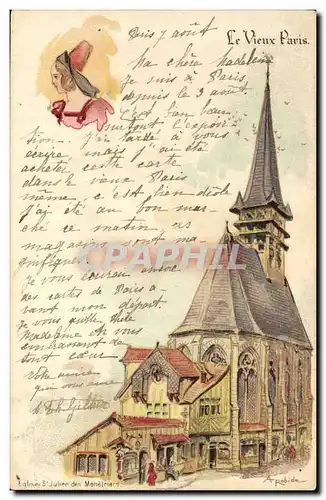 Le Vieux Paris.
Paris 7 août
Ma chère Madeleine
Je suis à Paris
depuis le 3 août
C'est bien beau
surtout l'exposi-
tion. J'ai tardé à vous
écrire mais j'ai été
acheter cette carte
dans le vieux Paris
même, c'est bien drôle
J'ai été au bon mar-
ché ce matin
magasins sont ma
gnifiques
Je vous
des cartes de Paris a-
vant mon départ
Je vous quitte chère
Madeleine en vous
embrassant de
tout cœur
Votre amie
qui vous aime
CPARAMA
Eglise St Julien des Ménétriers
A Robida